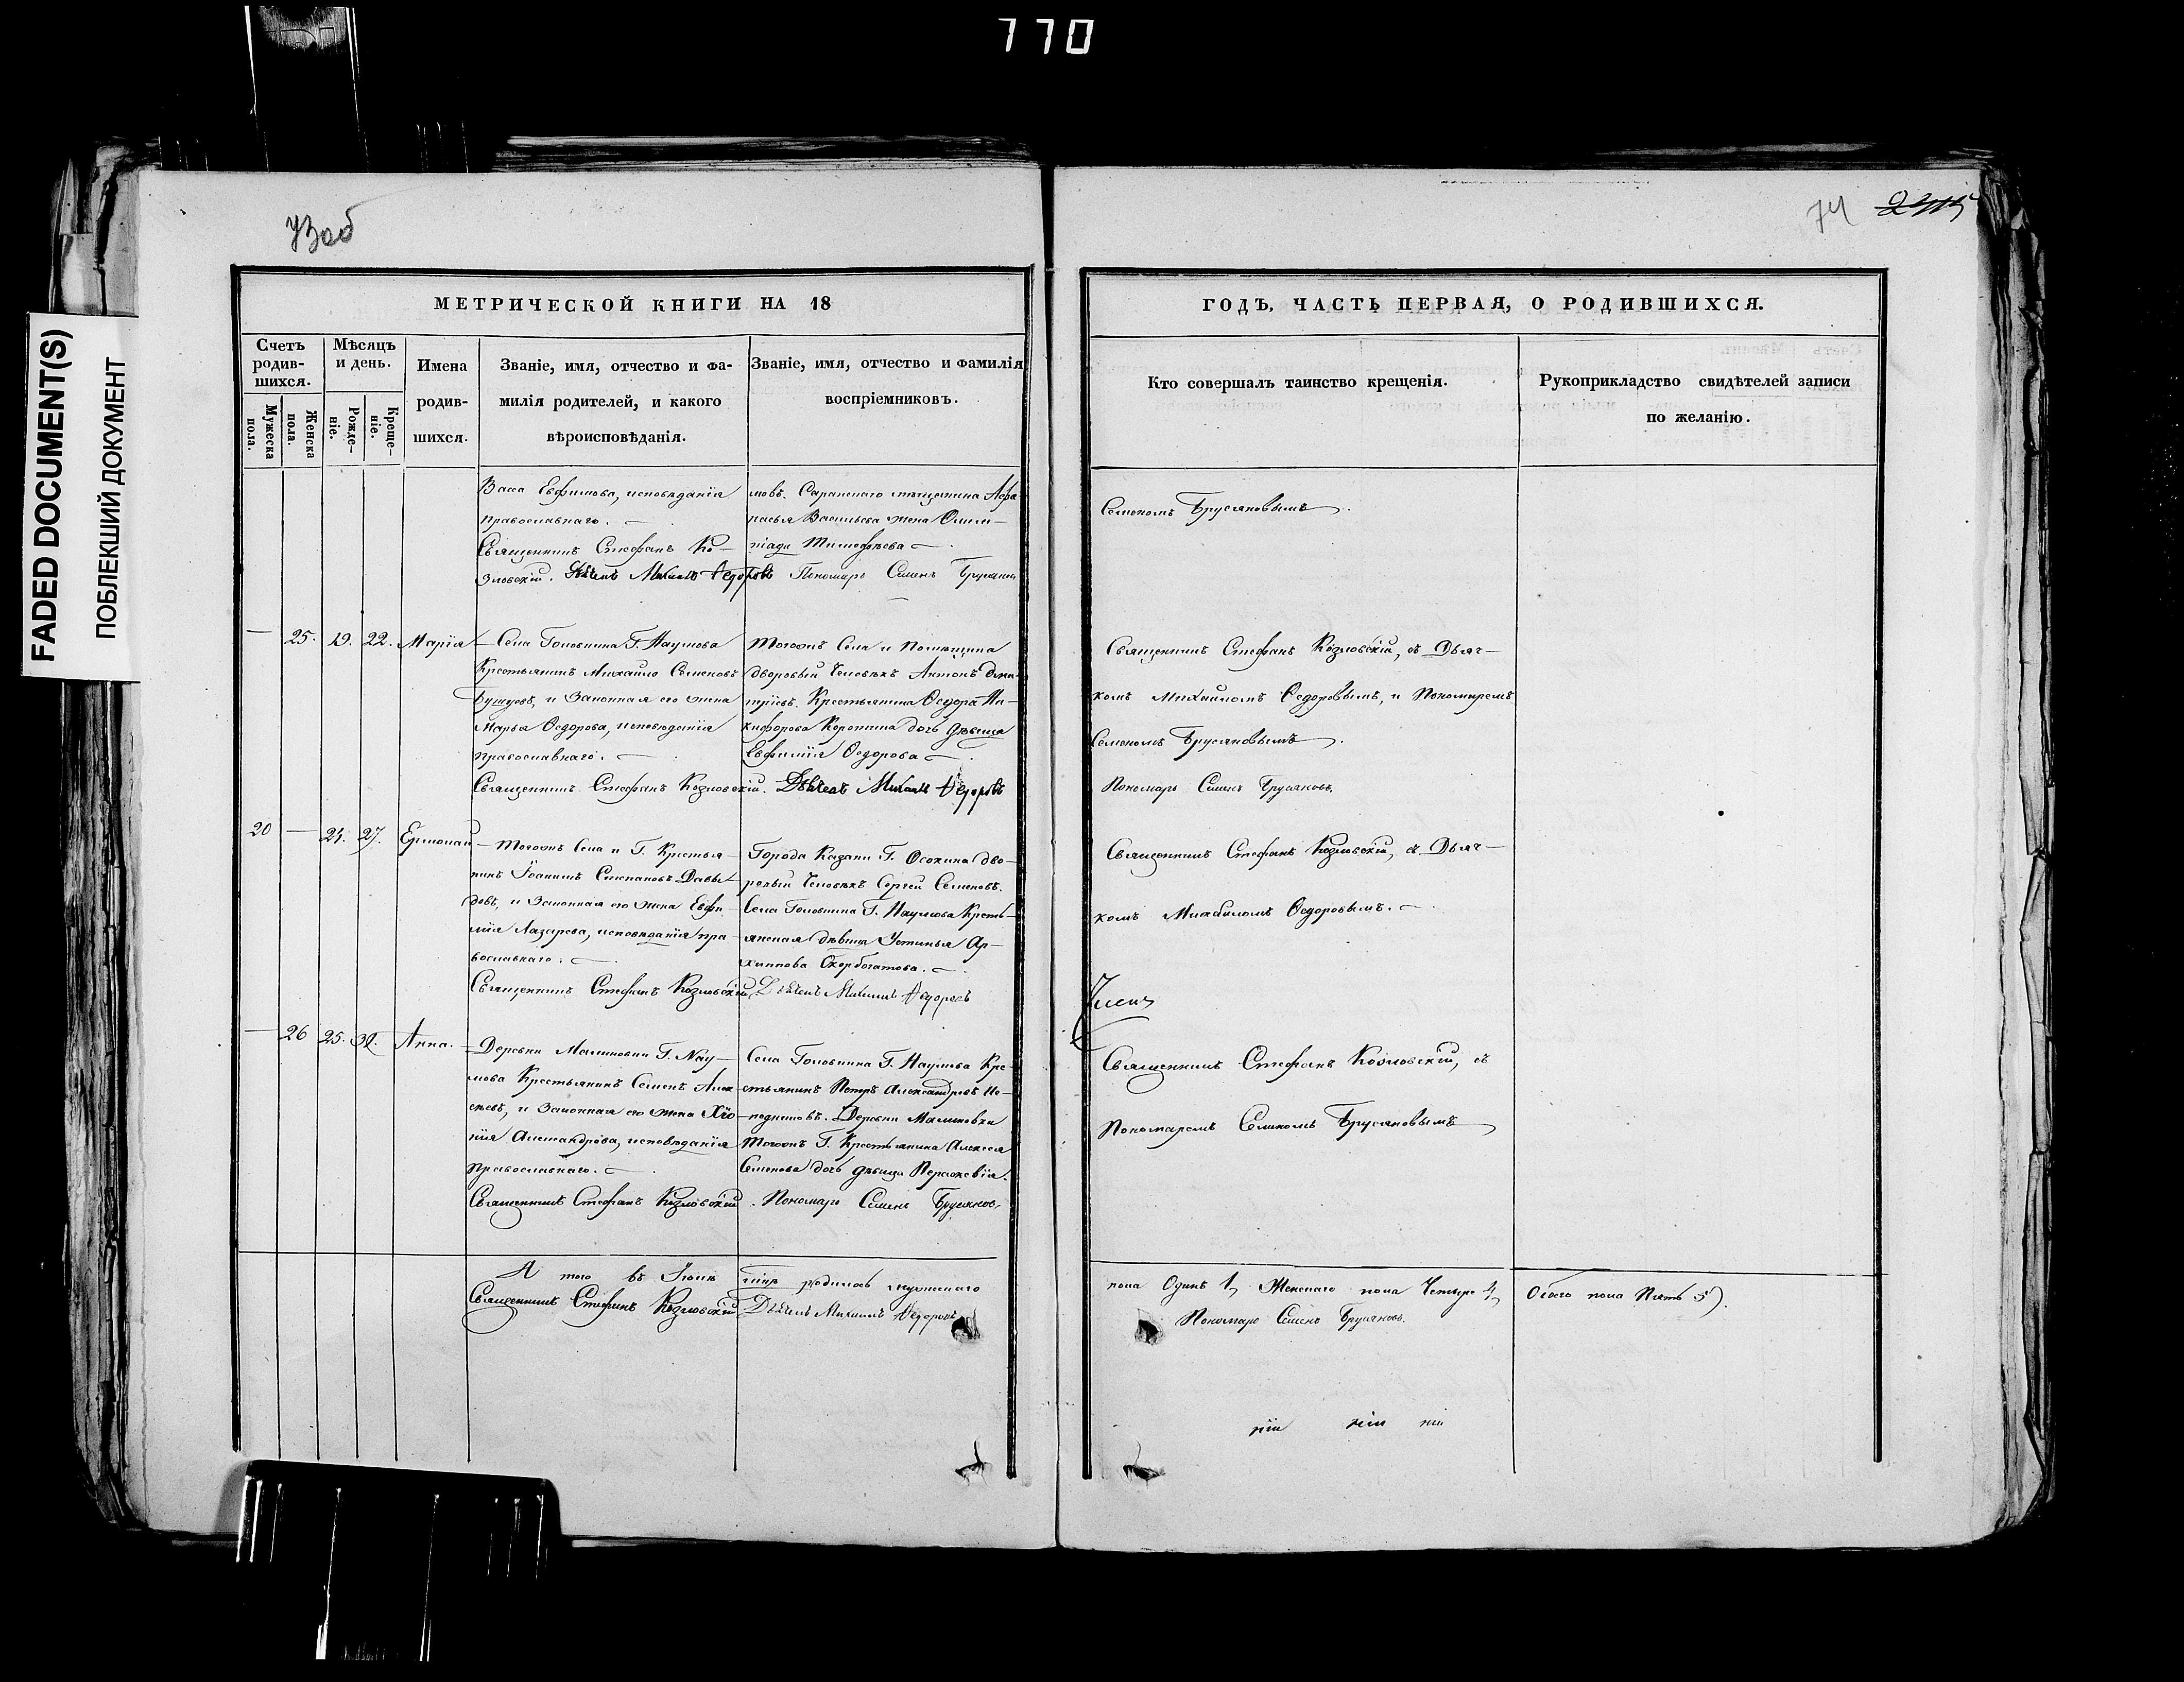 770
FADED DOCUMENT(S)
ПОБЛЕКШИЙ ДОКУМЕНТ
73об
74 2415
МЕТРИЧЕСКОЙ КНИГИ НА 18
Счетъ родившихся.
Мужеска пола.
Женска пола.
Мѣсяцъ и день.
Рожде-ніе.
Креще-ніе.
Имена
родив-
шихся.
Званіе, имя, отчество и фа-
милія родителей, и какого
вѣроисповѣданія.
Званіе, имя, отчество и фамилія
воспріемниковъ.
Васса Евфимова, исповѣданія
православнаго.
Священникъ Стефанъ Ко-
зловскій. Дьячекъ Михаилъ Ѳедоровъ
мовъ. Саранскаго мѣщанина Аѳа-
насья Васильева жена Олим-
піада Тимоѳѣева
Пономарь Семенъ Брусянов
— 25. 19. 22. Марія
Села Головнина Г. Наумова
Крестьянинъ Михайло Семеновъ
и Законная его жена
Марья Ѳедорова, исповѣданія
православнаго.
Священникъ Стефанъ Козловскій. Дьячекъ Михаилъ Ѳедоровъ
Тогожъ Села и Помѣщика
дворовый Человѣкъ Антонъ Дми-
тріевъ. Крестьянина Ѳедора Ни-
кифорова дочь дѣвица
Евфимія Ѳедорова
20 — 24. 27. Ермолай
Тогожъ Села и Г. Крестья-
нинъ Іоаннъ Степановъ Давы-
довъ, и Законная его жена Евфи-
мія Лазарева, исповѣданія пра-
вославнаго.
Священникъ Стефанъ Козловскій, Дьячекъ Михаилъ Ѳедоровъ
Города Казани Г. Осокина дво-
ровый Человѣкъ Сергей Семеновъ.
Села Головнина Г. Наумова Кресть-
янская дѣвица Устинья Ар-
хиппова Скоробогатова.
— 26 25. Анна.
Деревни Малиновки Г. Нау-
мова Крестьянинъ Семенъ Але-
ксѣевъ, и Законная его жена Хіо-
нія Александрова, исповѣданія
православнаго.
Священникъ Стефанъ Козловскій. Пономарь Семенъ Брусяновъ
Села Головнина Г. Наумова Кре-
стьянинъ Петръ Александровъ
Деревни Малиновки
Тогожъ Г. Крестьянина Алексея
Семенова дочь дѣвица Параскевія.
А того въ Іюнѣ мѣсяцѣ родилось мужескаго
Священникъ Стефанъ Козловскій Дьячекъ Михаилъ Ѳедоровъ
ГОДЪ, ЧАСТЬ ПЕРВАЯ, О РОДИВШИХСЯ.
Кто совершалъ таинство крещенія.
Рукоприкладство свидѣтелей записи
по желанію.
Семеномъ Брусяновымъ.
Священникъ Стефанъ Козловскій, съ Дьяч-
комъ Михаиломъ Ѳедоровымъ, и Пономаремъ
Семеномъ Брусяновымъ.
Пономарь Семенъ Брусяновъ.
Священникъ Стефанъ Козловскій, съ Дьяч-
комъ Михаиломъ Ѳедоровымъ.
Священникъ Стефанъ Козловскій, съ
Пономаремъ Семеномъ Брусяновымъ
пола Одинъ 1, Женскаго пола Четыре 4, Обоего пола Пять 5).
Пономарь Семенъ Брусяновъ.